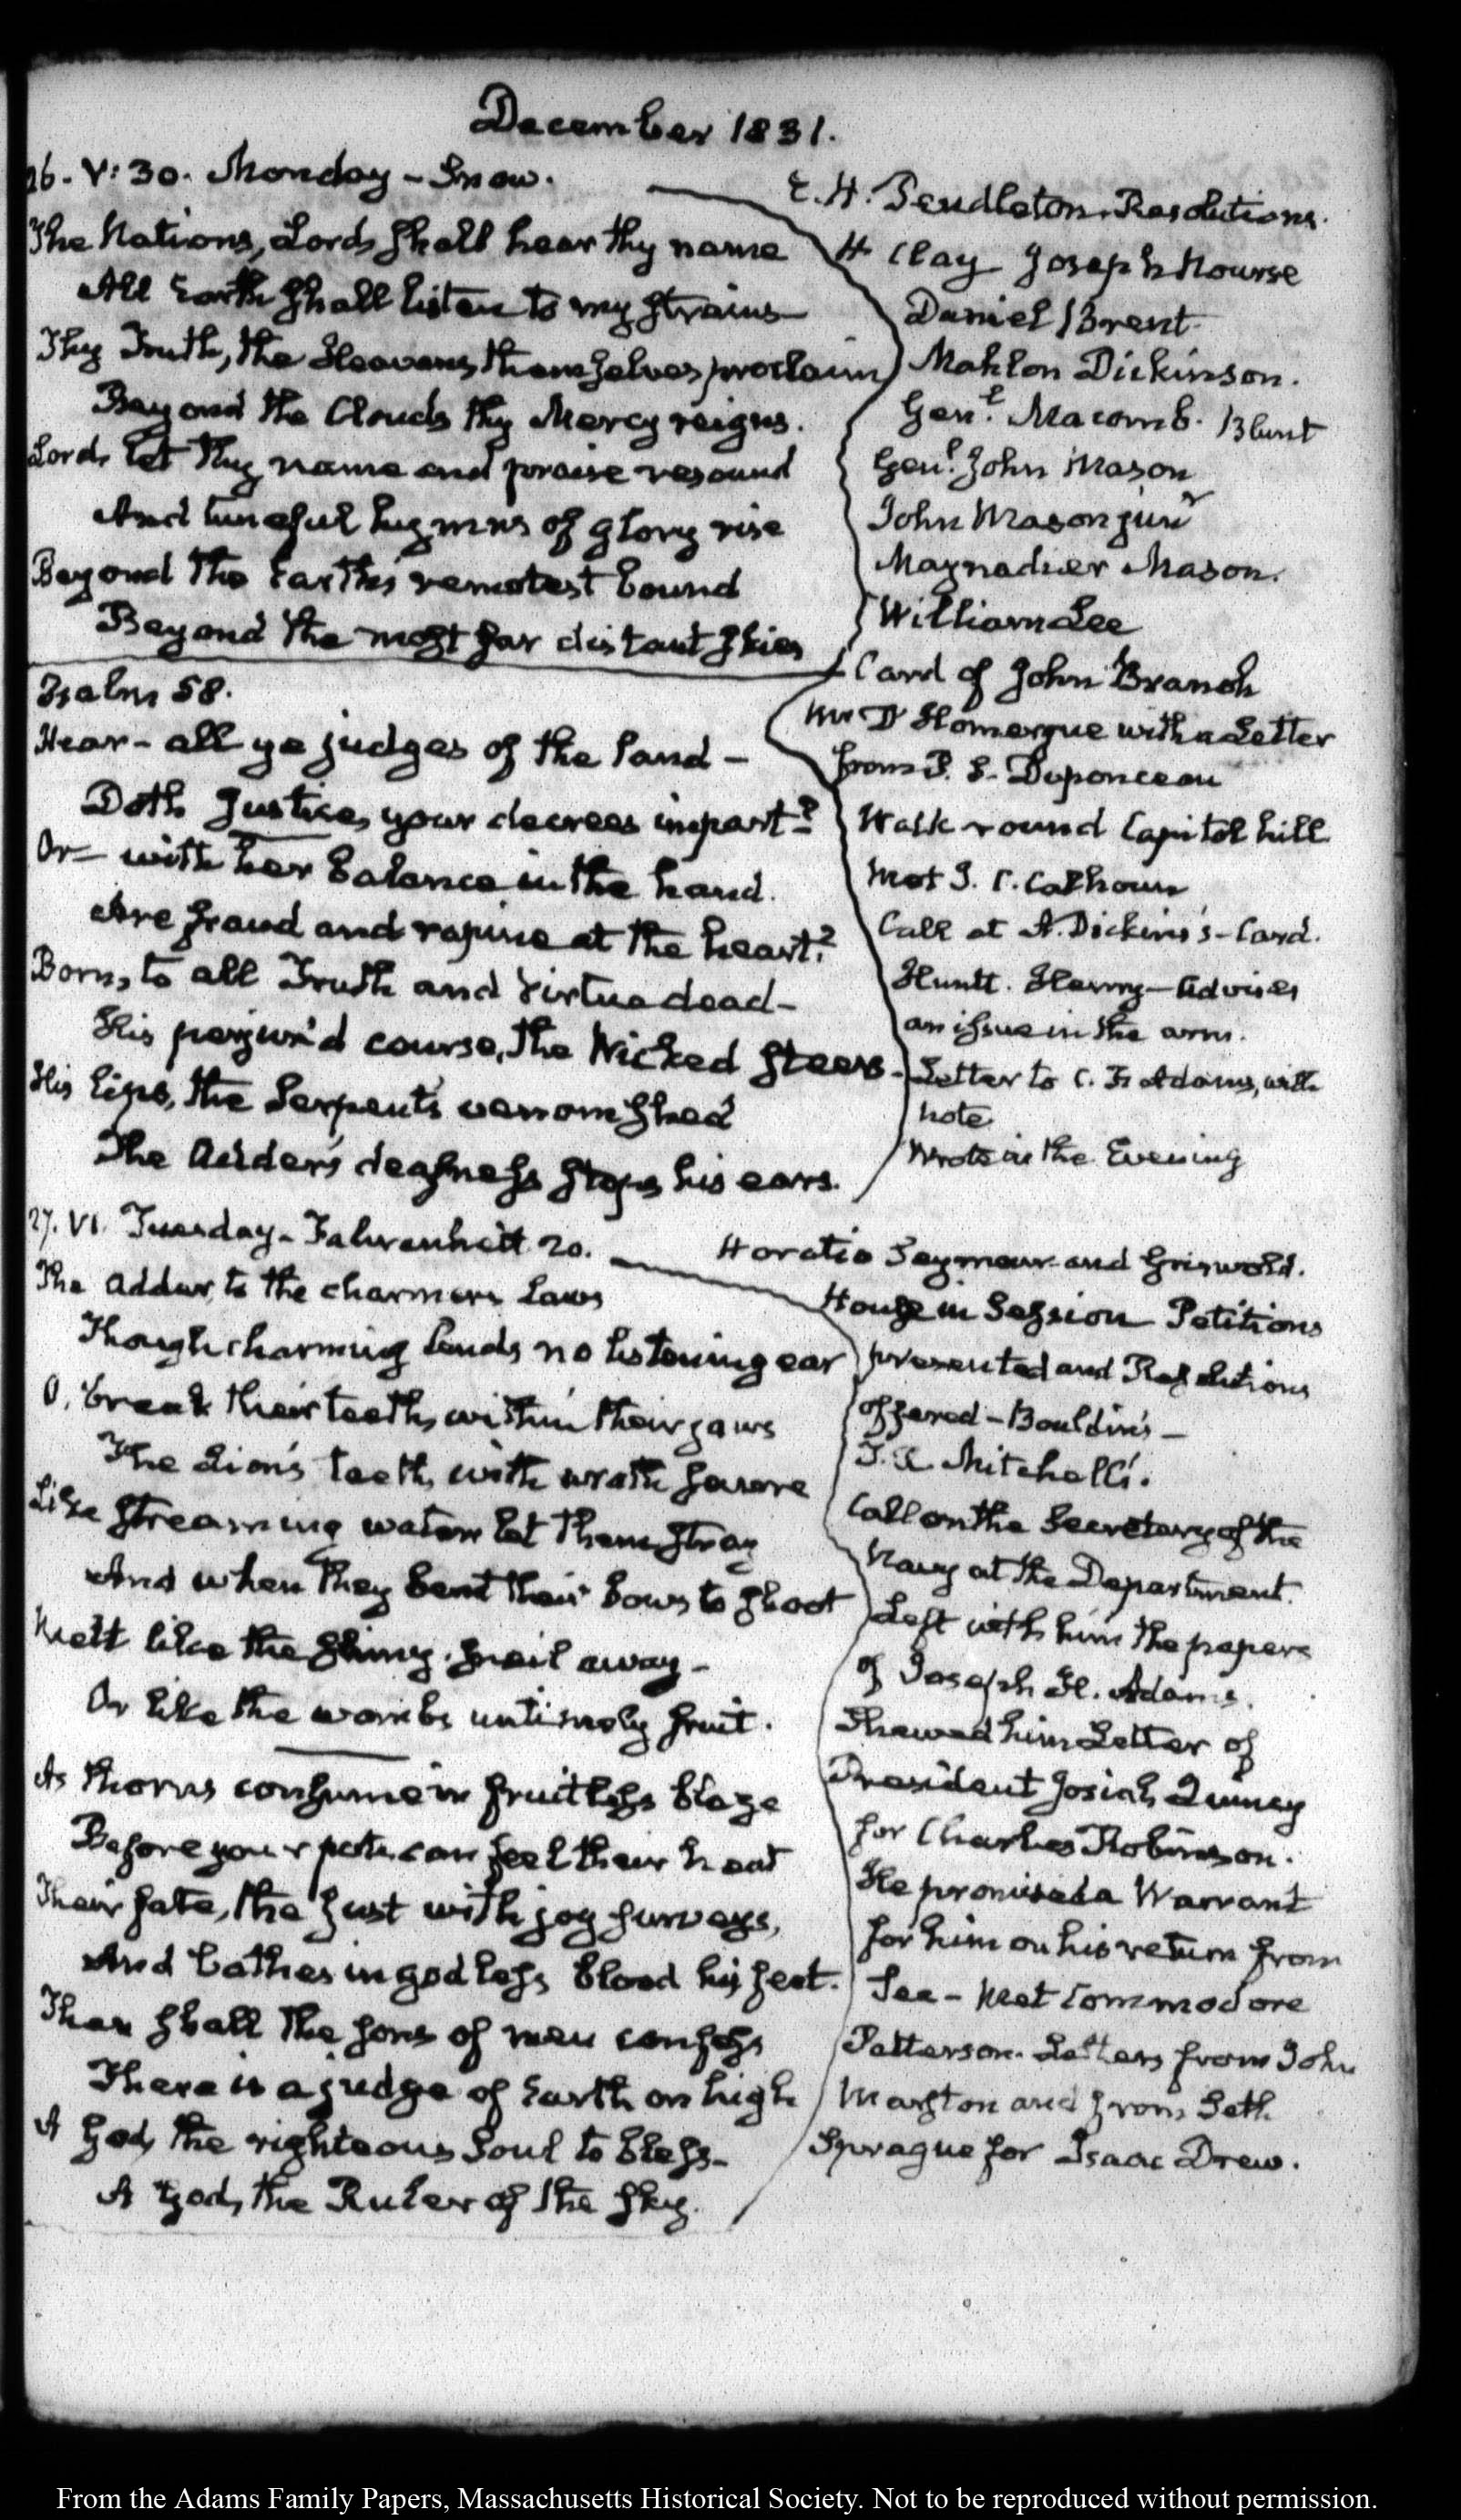 December 1831.
26. V: 30. Monday - Snow.
The Nations, Lord, shall hear thy name
All Earth shall listen to my strains
Thy Truth, the Heavens, themselves, proclaim
Beyond the Clouds thy Mercy reigns.
Lord, let thy name and praise resound
And tuneful hymns of glory rise
Beyond the Earth's remotest bound
Beyond the most far distant skies
Psalm 58.
Hear - all ye judges of the land -
Doth Justice, your decrees impart?
Or - with her balance in the hand.
Are fraud and rapine at the heart?
Born, to all Truth and Virtue dead -
His perjur'd course, the Wicked steers -
His lips, the Serpent's venom shed
The Adder's deafness stops his ears.
E. H. Pendleton. Resolutions.
H Clay Joseph Nourse
Daniel Brent
Mahlon Dickinson.
Genl. Macomb. Blunt
Genl. John Mason
John Mason junr
Maynadier Mason.
William Lee
Card of John Branch
Mr D'Homergue with a Letter
from P. S. Duponceau
Walk round Capitol hill
Met J. C. Calhoun
Call at A. Dickins's - Card.
Huntt. Henry - Advises
an issue in the arm.
Letter to C. F. Adams, with
note
Wrote in the Evening
27. VI. Tuesday - Fahrenheit 20.
The adder, to the charmers laws
Though charming lends no listening ear
O, break their teeth, within their jaws
The Lion's teeth, with wrath severe
Like streaming waters let them stray
And when they bent their bows to shoot
Melt like the slimy snail away -
Or like the womb's untimely fruit.
As thorns consume in fruitless blaze
Before your pots can feel their heat
Their fate, the just with joy surveys,
And bathes in godless blood his feet.
Then shall the sons of men confess
There is a judge of Earth on high
A God, the righteous Soul to bless -
A God, the Ruler of the sky.
Horatio Seymour and Griswold.
House in Session Petitions
presented and Resolutions
offered - Bouldin's -
T. R. Mitchell's.
Call on the Secretary of the
Navy at the Department.
Left with him the papers
of Joseph H. Adams.
Shewed him Letter of
President Josiah Quincy
for Charles Robinson.
He promised a Warrant
for him on his return from
Sea - Met Commodore
Patterson. Letters from John
Marston and from Seth
Sprague for Isaac Drew.
From the Adams Family Papers, Massachusetts Historical Society. Not to be reproduced without permission.